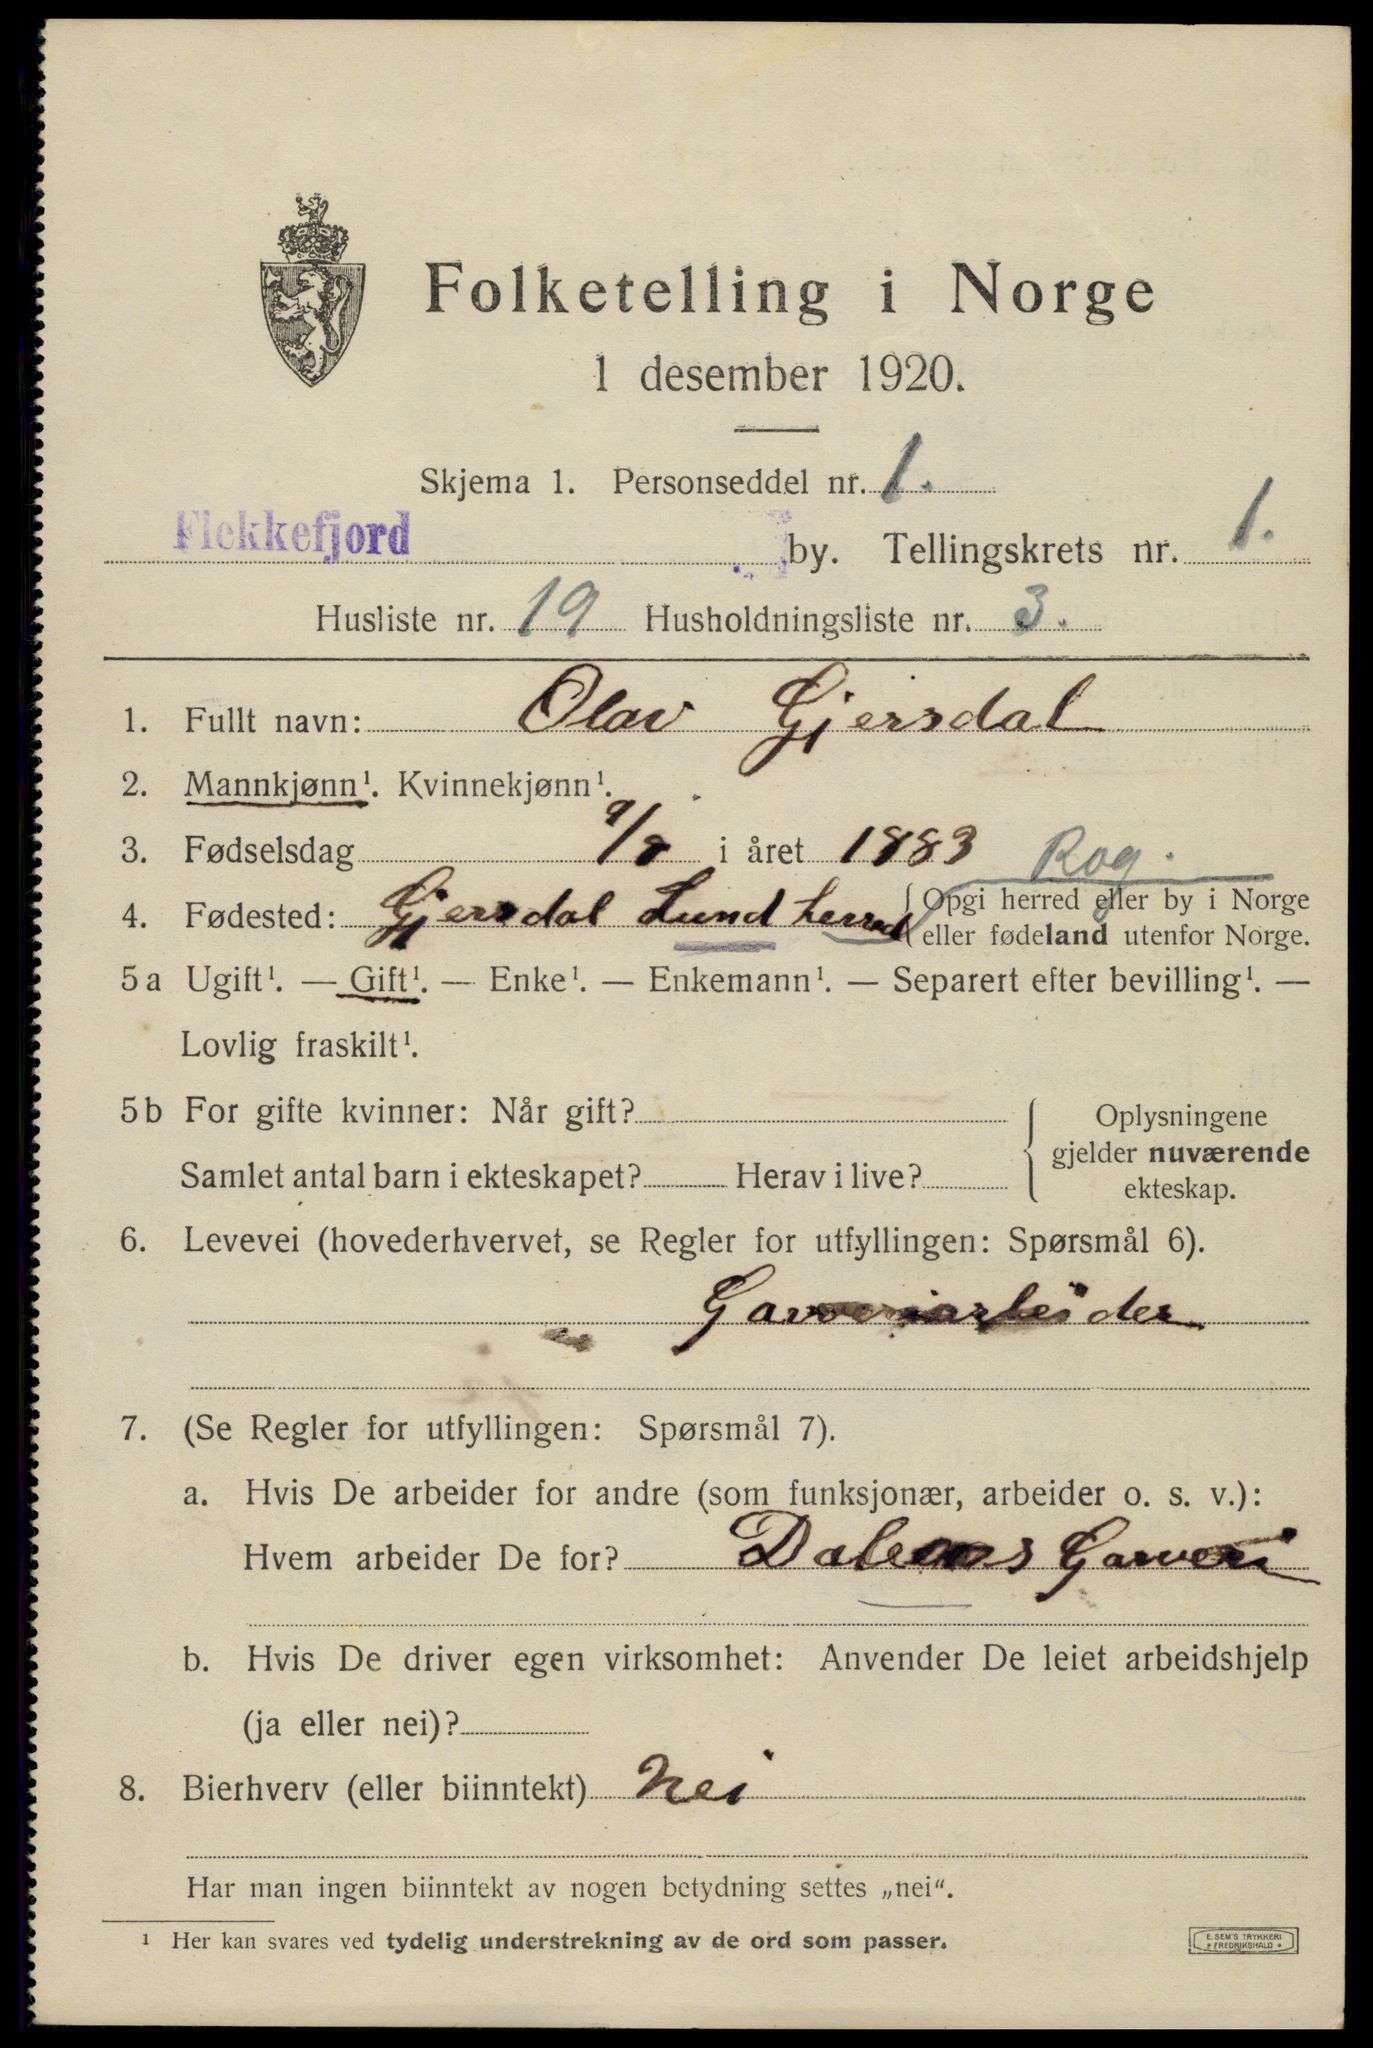 Folketelling i Norge
1 desember 1920.
Skjema 1. Personseddel nr. 1.
Flekkefjord by. Tellingskrets nr. 1.
Husliste nr. 19 Husholdningsliste nr. 3.
1. Fullt navn: Olav Gjersdal
2. Mannkjønn¹. Kvinnekjønn¹.
3. Fødselsdag 9/8 i året 1883 Rog.
4. Fødested: Gjersdal Lund herred { Opgi herred eller by i Norge
eller fødeland utenfor Norge.
5a Ugift¹. — Gift¹. — Enke¹. — Enkemann¹. — Separert efter bevilling¹. —
Lovlig fraskilt¹.
5b For gifte kvinner: Når gift? { Oplysningene
gjelder nuværende
Samlet antal barn i ekteskapet? Herav i live? ekteskap.
6. Levevei (hovederhvervet, se Regler for utfyllingen: Spørsmål 6).
Garveriarbeider
7. (Se Regler for utfyllingen: Spørsmål 7).
a. Hvis De arbeider for andre (som funksjonær, arbeider o. s. v.):
Hvem arbeider De for? Garveri
b. Hvis De driver egen virksomhet: Anvender De leiet arbeidshjelp
(ja eller nei)?
8. Bierhverv (eller biinntekt) Nei
Har man ingen biinntekt av nogen betydning settes „nei“.
¹ Her kan svares ved tydelig understrekning av de ord som passer.
E. SEM'S TRYKKERI
• FREDRIKSHALD •